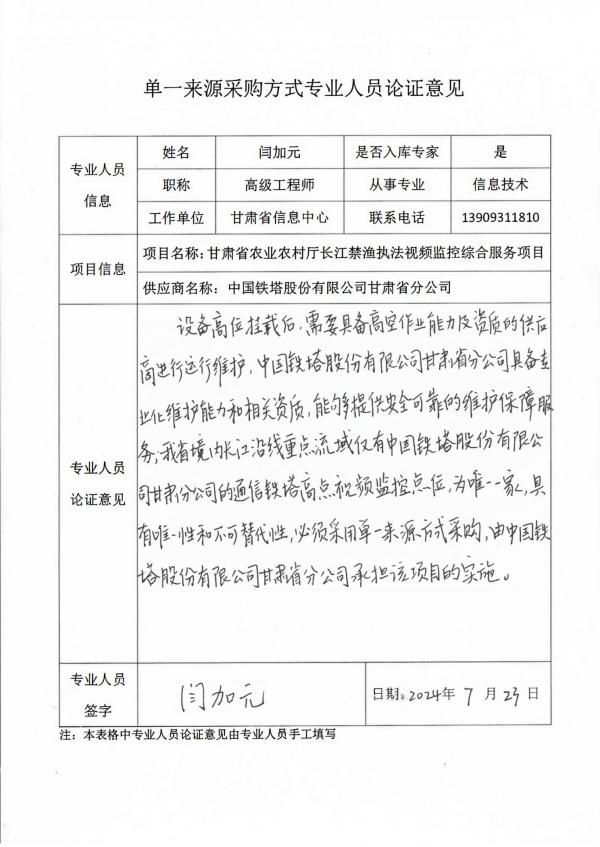 单一来源采购方式专业人员论证意见
专业人员信息
姓名 闫加元 是否入库专家 是
职称 高级工程师 从事专业 信息技术
工作单位 甘肃省信息中心 联系电话 13909311810
项目信息
项目名称：甘肃省农业农村厅长江禁渔执法视频监控综合服务项目
供应商名称：中国铁塔股份有限公司甘肃省分公司
专业人员论证意见
设备高位挂载后，需要具备高空作业能力及资质的供应
商进行运行维护，中国铁塔股份有限公司甘肃省分公司具备专
业化维护能力和相关资质，能够提供安全可靠的维护保障服
务；我省境内长江沿线重点流域仅有中国铁塔股份有限公
司甘肃分公司的通信铁塔高点视频监控点位，为唯一一家，具
有唯一性和不可替代性，必须采用单一来源方式采购，由中国铁
塔股份有限公司甘肃省分公司承担该项目的实施。
专业人员签字
闫加元
日期：2024年 7 月 23 日
注：本表格中专业人员论证意见由专业人员手工填写